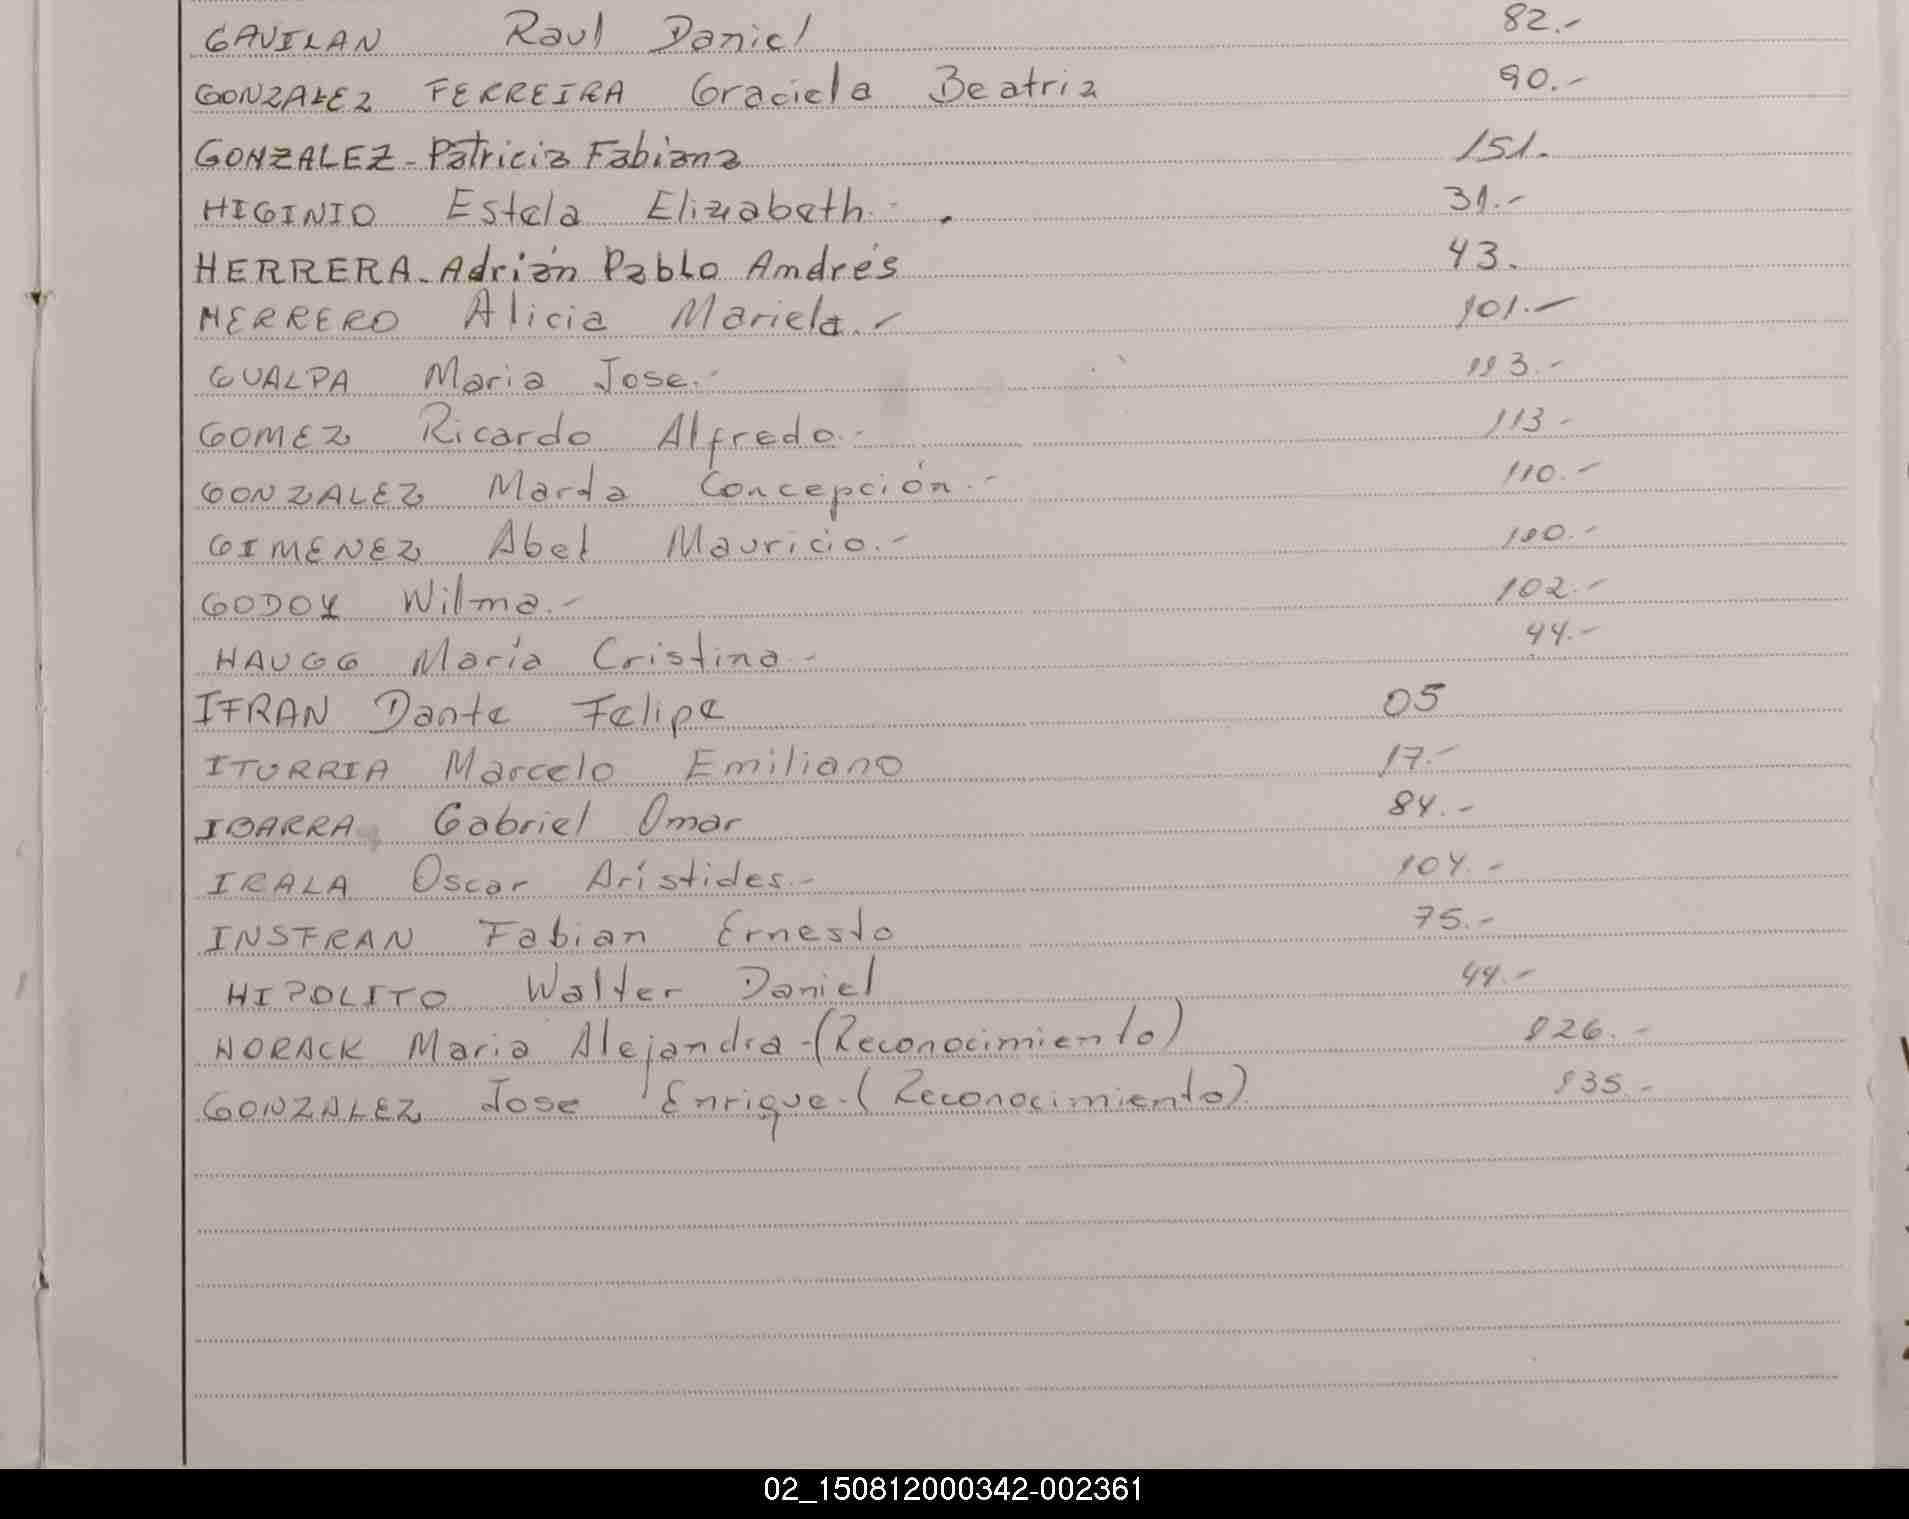 GAVILAN Raul Daniel 82.-
GONZALEZ FERREIRA Graciela Beatriz 90.-
GONZALEZ - Patricia Fabiana 151.
HIGINIO Estela Elizabeth.- 31.-
HERRERA - Adrián Pablo Andrés 43.
HERRERO Alicia Mariela.- 101.-
GUALPA Maria Jose.- 113.-
GOMEZ Ricardo Alfredo.- 113-
GONZALEZ Marta Concepción.- 110.-
GIMENEZ Abel Mauricio.- 100.-
GODOY Wilma.- 102.-
HAUGG María Cristina.- 44.-
IFRAN Dante Felipe 05
ITURRIA Marcelo Emiliano 17.-
IBARRA Gabriel Omar 84.-
IRALA Oscar Arístides.- 104.-
INSFRAN Fabian Ernesto 75.-
HIPOLITO Walter Daniel 44.-
HORACK Maria Alejandra-(Reconocimiento) 126.-
GONZALEZ Jose Enrique-(Reconocimiento) 135.-
02_150812000342-002361